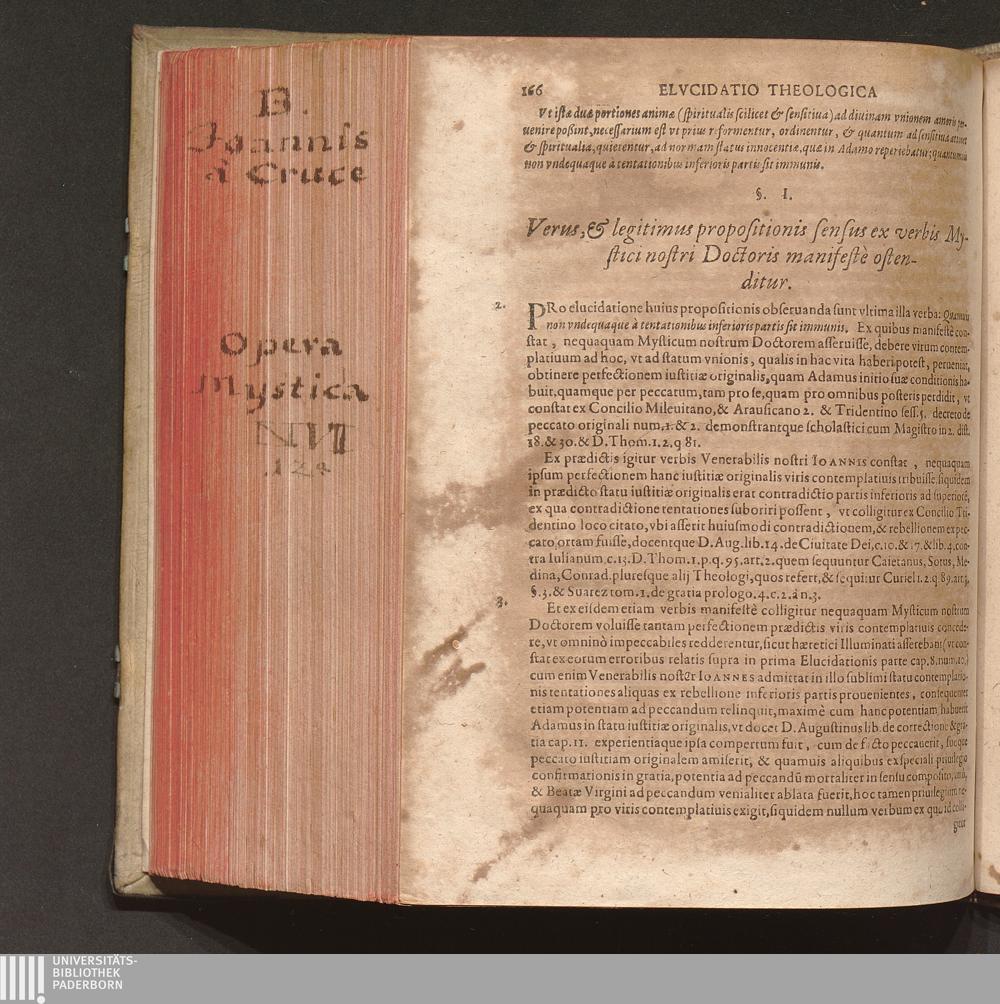 B.
Joannis
à Cruce
Opera
Mystica
NVI
124
166 ELVCIDATIO THEOLOGICA
Vt istæ duæ portiones animæ (spiritualis scilicet & sensitiua) ad diuinam vnionem amoris
uenire poßint, necessarium est vt prius reformentur, ordinentur, & quantum ad sensitiua
& spiritualia, quietentur, ad normam status innocentiæ, quæ in Adamo reperiebatur; quantumuis
non vndequaque à tentationibus inferioris partis sit immunis.
§. I.
Verus, & legitimus propositionis sensus ex verbis My-
stici nostri Doctoris manifestè osten-
ditur.
2. PRo elucidatione huius propositionis obseruanda sunt vltima illa verba: Quantumuis
non vndequaque à tentationibus inferioris partis sit immunis. Ex quibus manifestè con-
stat, nequaquam Mysticum nostrum Doctorem asseruisse, debere virum contem-
platiuum ad hoc, vt ad statum vnionis, qualis in hac vita haberi potest, perueniat,
obtinere perfectionem iustitiæ originalis, quam Adamus initio suæ conditionis ha-
buit, quamque per peccatum, tam pro se, quam pro omnibus posteris perdidit, vt
constat ex Concilio Mileuitano, & Arausicano 2. & Tridentino sess. 5. decreto de
peccato originali num. 1. & 2. demonstrantque scholastici cum Magistro in 2. dist.
18. & 30. & D. Thom. 1. 2. q 81.
Ex prædictis igitur verbis Venerabilis nostri IOANNIS constat, nequaquam
ipsum perfectionem hanc iustitiæ originalis viris contemplatiuis tribuisse, siquidem
in prædicto statu iustitiæ originalis erat contradictio partis inferioris ad superiorē,
ex qua contradictione tentationes suboriri possent, vt colligitur ex Concilio Tri-
dentino loco citato, vbi asserit huiusmodi contradictionem, & rebellionem ex pec-
cato ortam fuisse, docentque D. Aug. lib. 14. de Ciuitate Dei, c. 10. & 17. & lib. 4. con-
tra Iulianum c. 13. D. Thom. 1. p. q. 95. art. 2. quem sequuntur Caietanus, Sotus, Me-
dina, Conrad. pluresque alij Theologi, quos refert, & sequitur Curiel 1. 2. q. 89. art. 3.
§. 3. & Suarez tom. 1. de gratia prologo. 4. c. 2. à n. 3.
3. Et ex eisdem etiam verbis manifestè colligitur nequaquam Mysticum nostrum
Doctorem voluisse tantam perfectionem prædictis viris contemplatiuis concede-
re, vt omninò impeccabiles redderentur, sicut hæretici Illuminati asserebant (vt con-
stat ex eorum erroribus relatis supra in prima Elucidationis parte cap. 8. num. 10.)
cum enim Venerabilis noster IOANNES admittat in illo sublimi statu contemplatio-
nis tentationes aliquas ex rebellione inferioris partis prouenientes, consequenter
etiam potentiam ad peccandum relinquit, maximè cum hanc potentiam habuerit
Adamus in statu iustitiæ originalis, vt docet D. Augustinus lib. de correctione & gra-
tia cap. 11. experientiaque ipsa compertum fuit, cum de facto peccauerit, suoque
peccato iustitiam originalem amiserit, & quamuis aliquibus ex speciali priuilegio
confirmationis in gratia, potentia ad peccandū mortaliter in sensu composito,
& Beatæ Virgini ad peccandum venialiter ablata fuerit, hoc tamen priuilegium ne-
quaquam pro viris contemplatiuis exigit, siquidem nullum verbum ex quo id colli-
gitur
UNIVERSITÄTS-
BIBLIOTHEK
PADERBORN